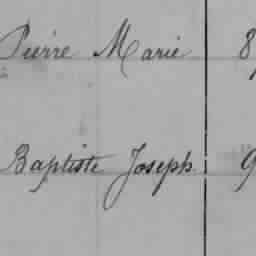 Pierre Marie 8
Baptiste Joseph 9